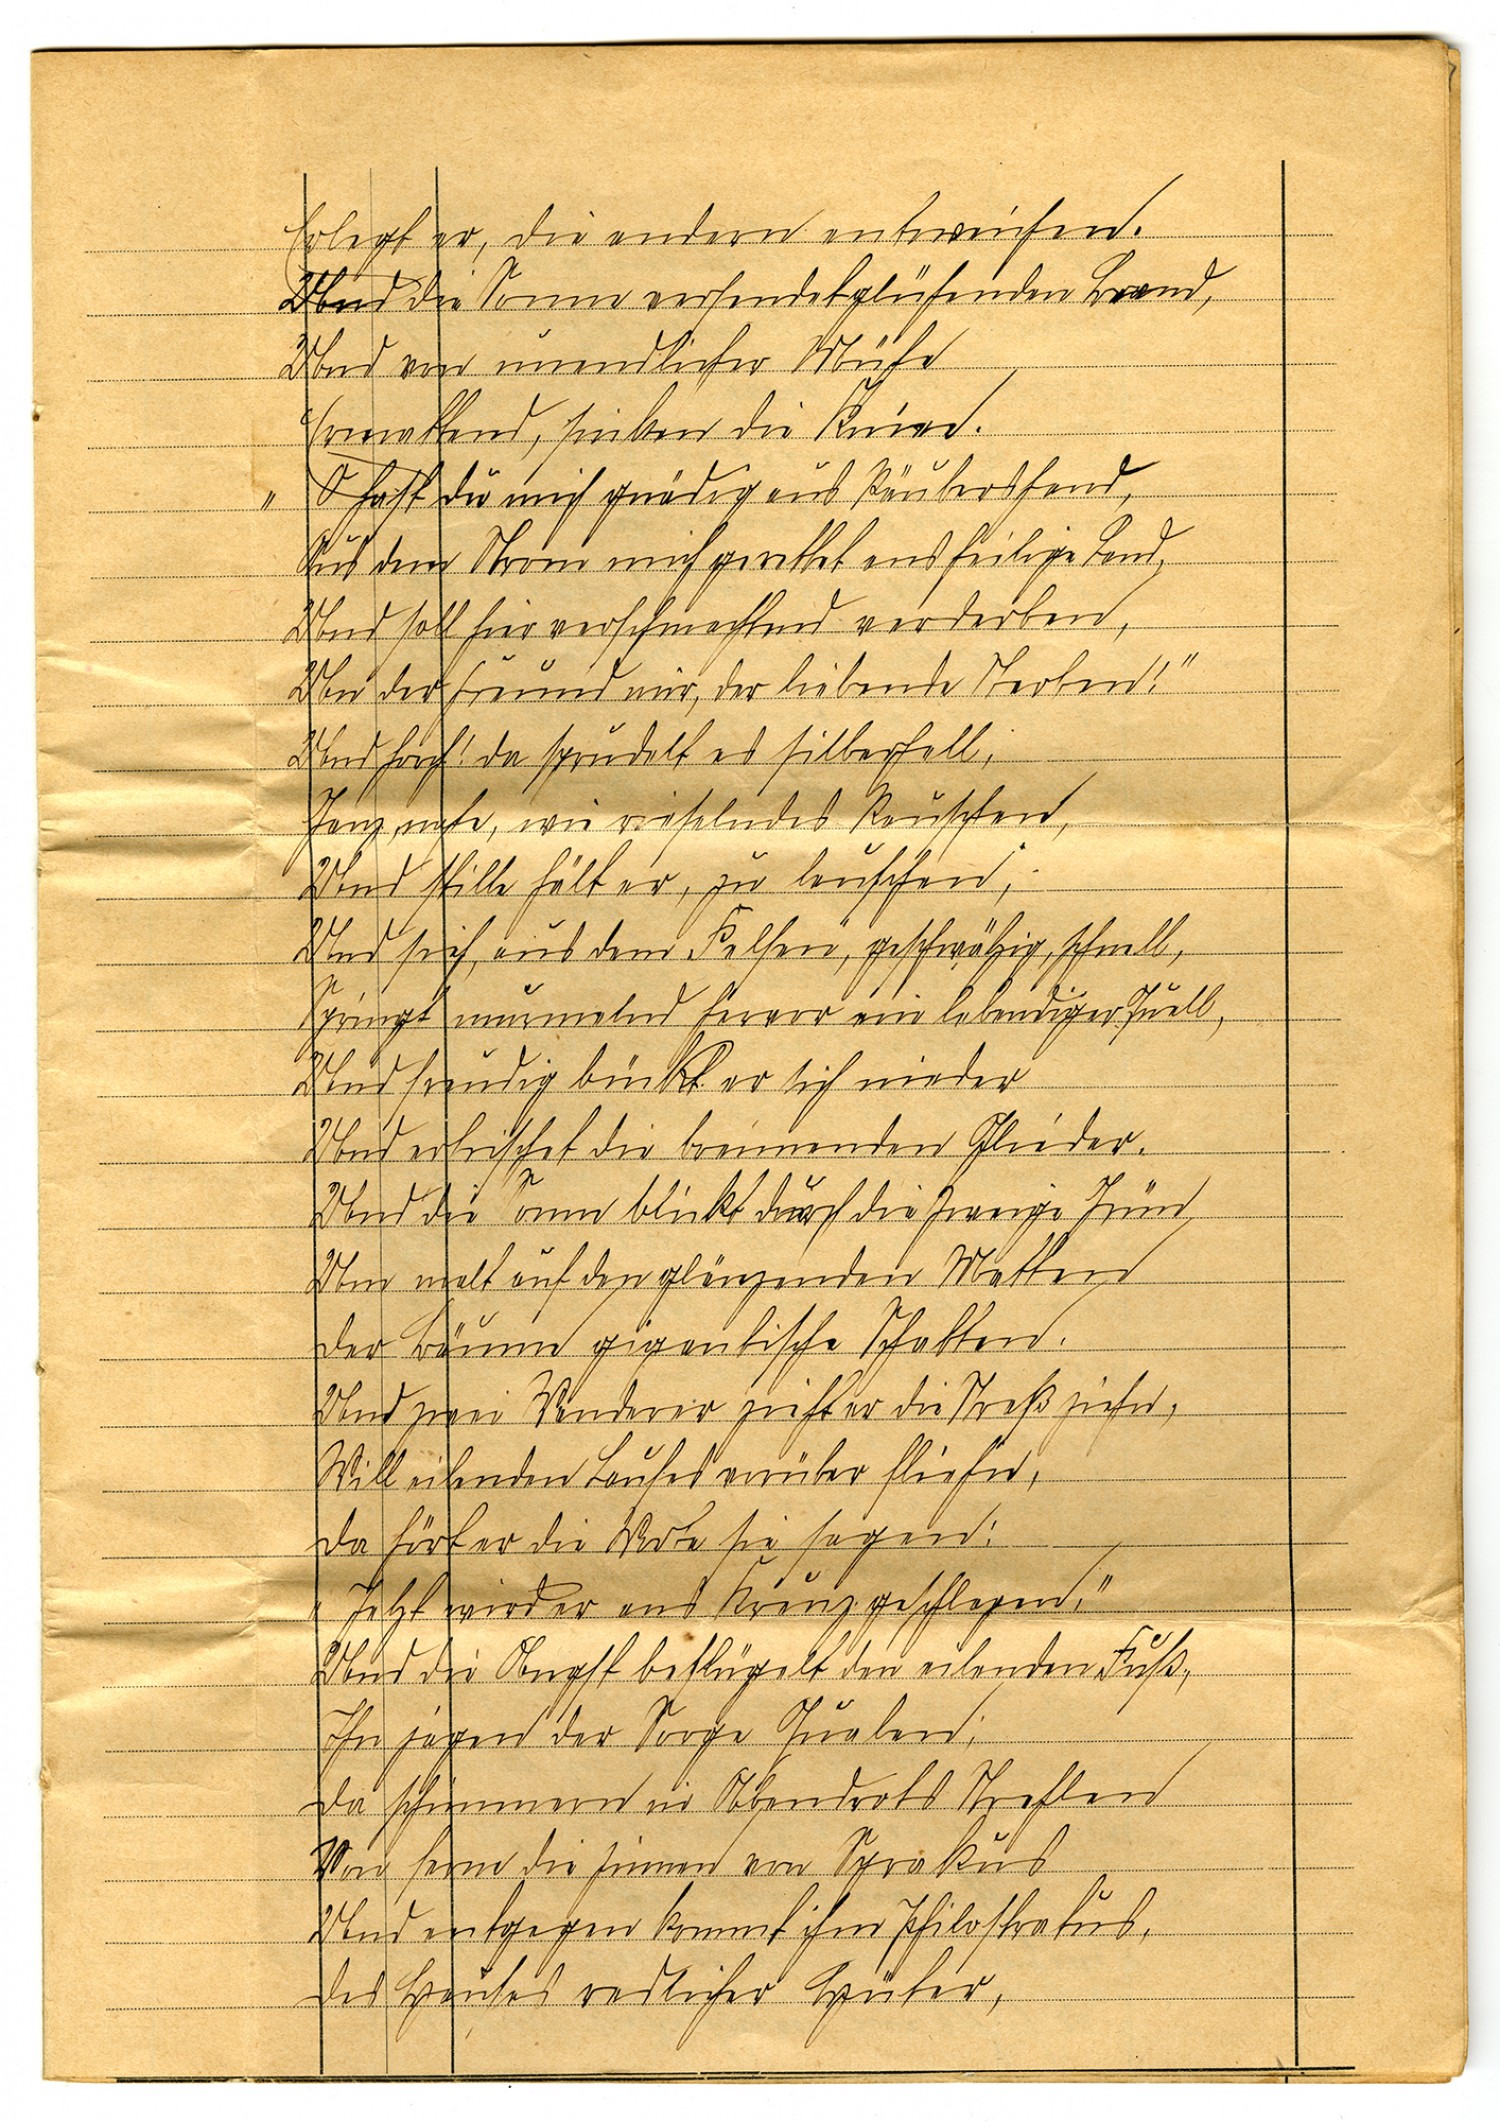 Erlegt er, die andern entweichen.
Und die Sonne versendet glühenden Brand,
Und von unendlicher Mühe
Ermattend, sinken die Kniee.
„O hast du mich gnädig aus Räubershand,
Aus dem Strom mich gerettet ans heilige Land,
Und soll hier verschmachtend verderben,
Un der Freund mir, der liebende Sterben!"
Und horch! da sprudelt es silberhell,
Ganz, nahe, wie rieselndes Rauschen,
Und stille hält er, zu lauschen;
Und sieh, aus dem Felsen, geschwätzig, schnell,
Springt murmelnd hervor ein lebendiger Quell,
Und freudig bückt er sich nieder
Und erfrischet die brennenden Glieder.
Und die Sonne blickt durch die Zweige Grün
Un malt auf den glänzenden Matten
der Bäume gigantische Schatten.
Und zwei Wanderer zieht er die Straß ziehn,
Will eilenden Laufes vorüber fliehn,
da hört er die Worte sie sagen:
„Jetzt wird er ans Kreuz geschlagen."
Und die Angst beflügelt den eilenden Fuß,
Ihn jagen der Sorge Qualen;
da schimmern in Abendrots Strahlen
Von ferne die Zinnen von Syrakus
Und entgegen kommt ihm Philostratus,
des Hauses redlicher Hüter,